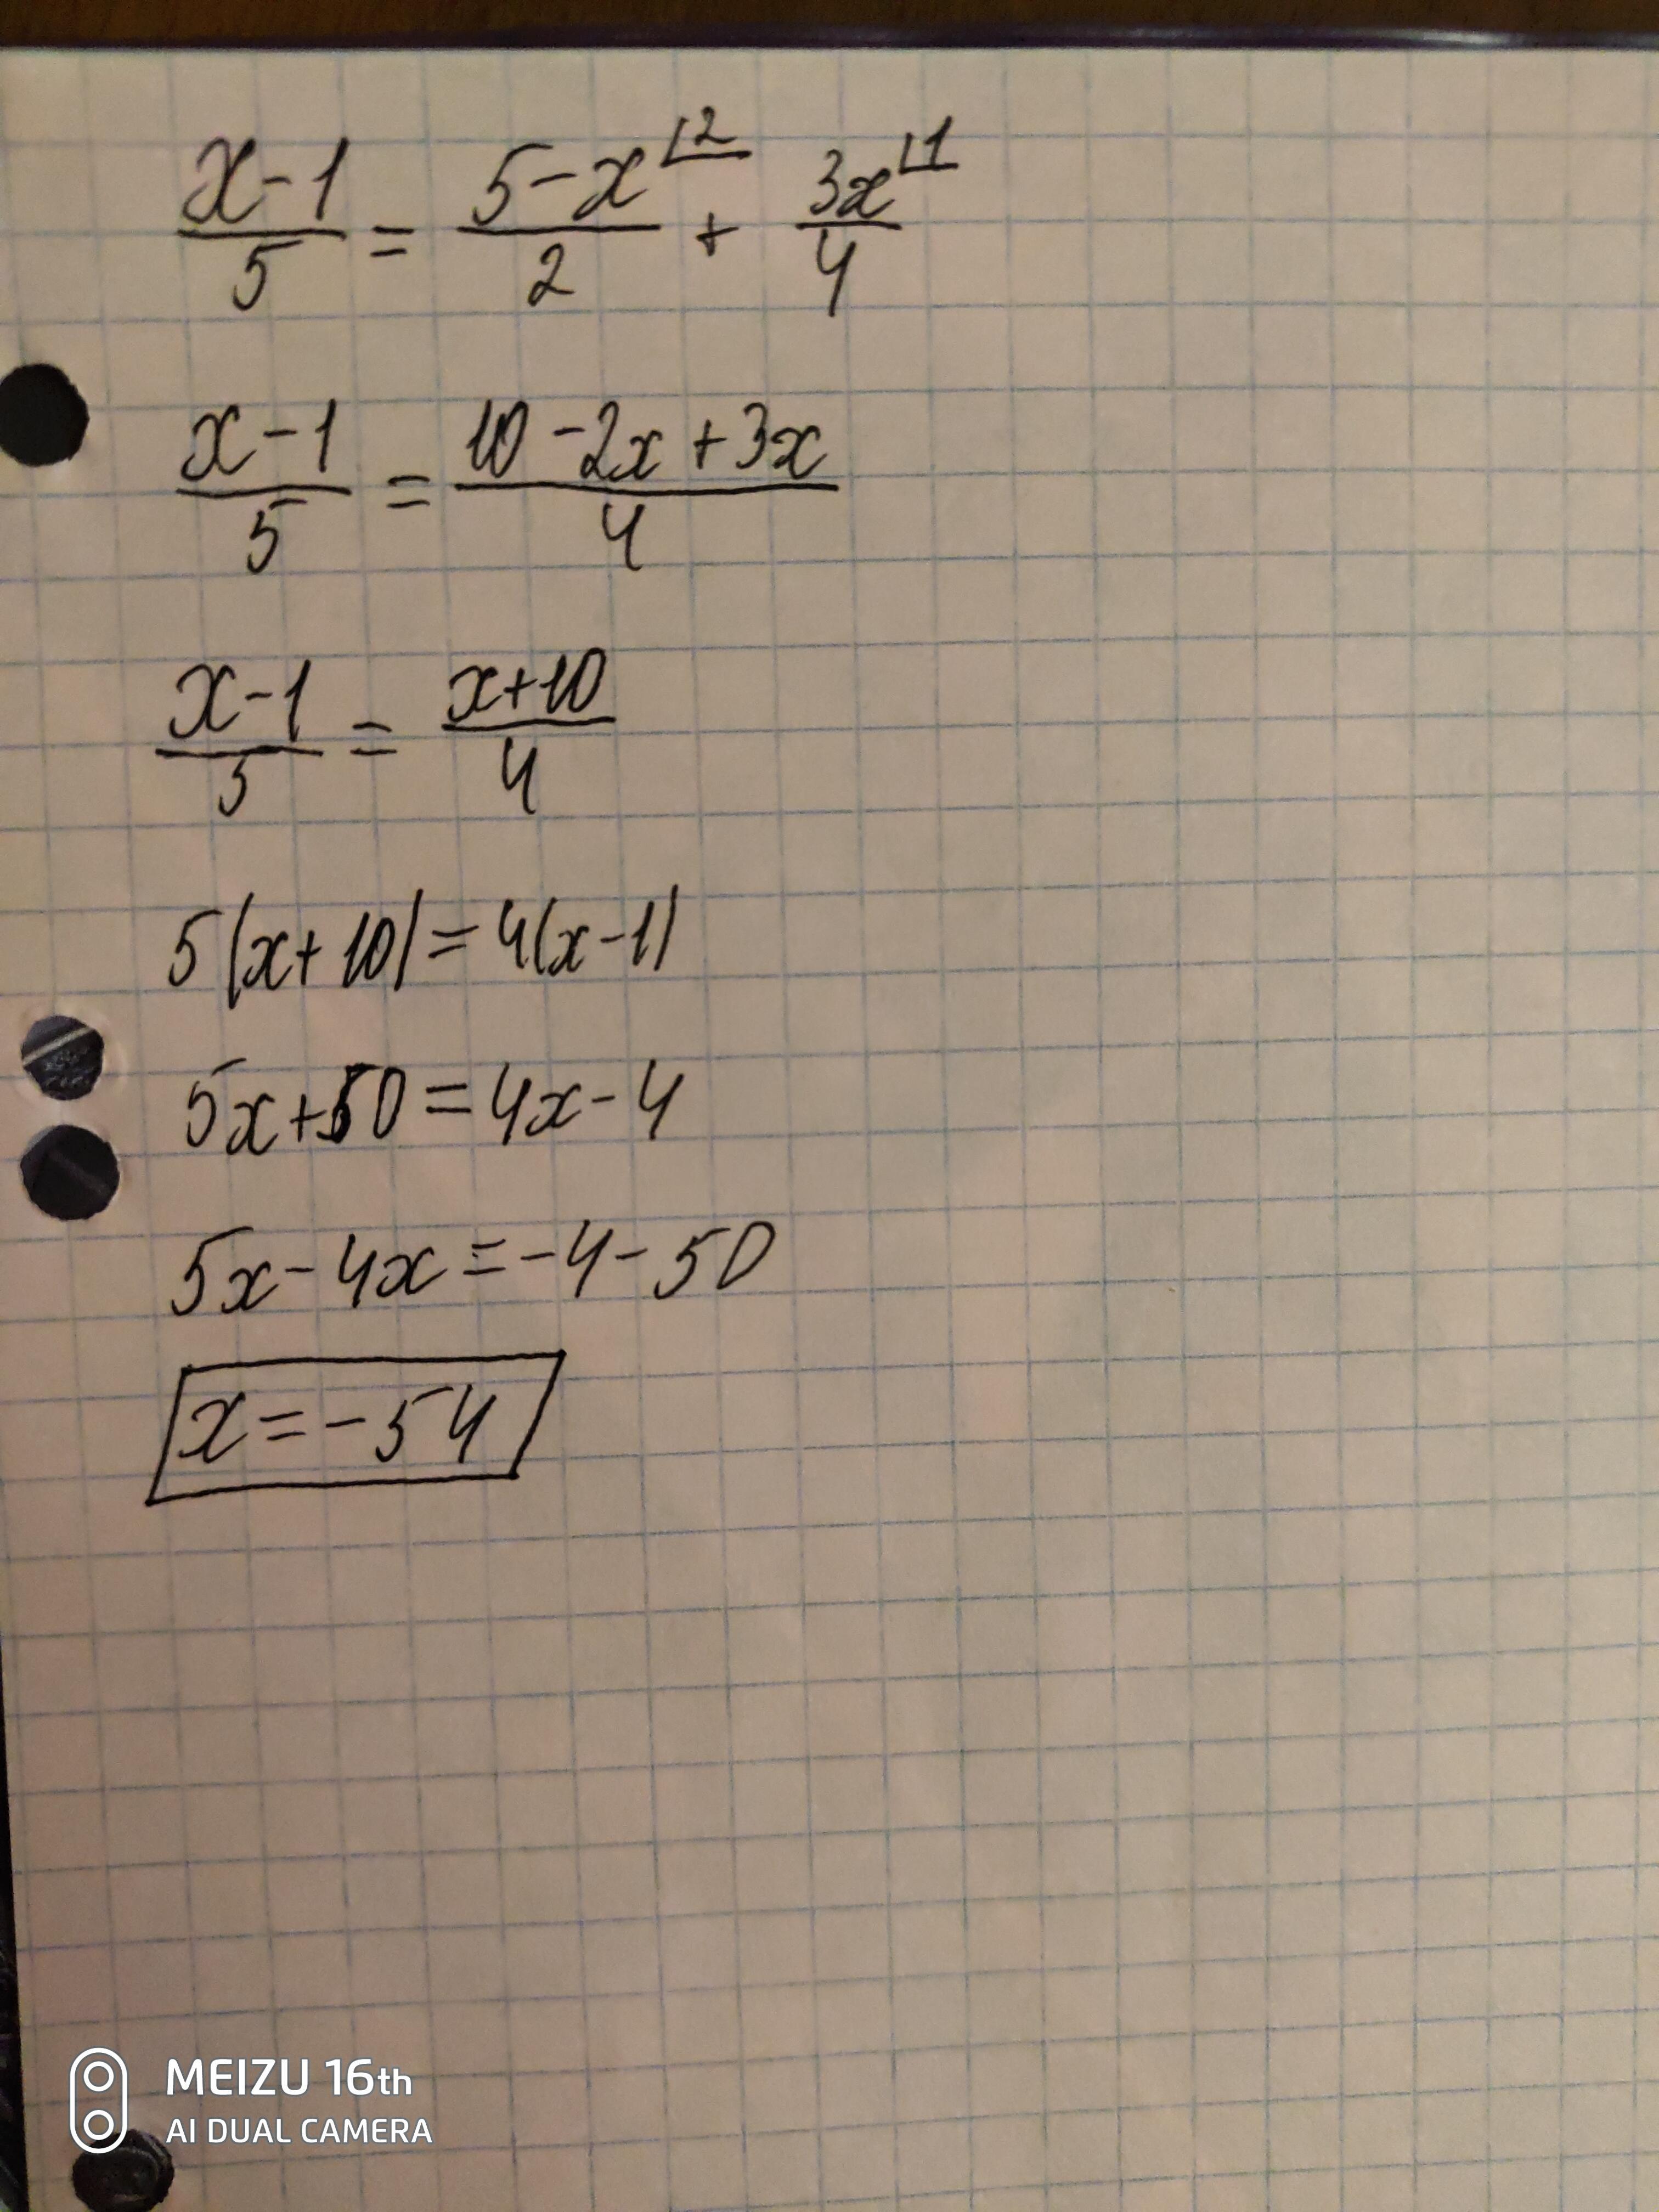 x-1/5 = 5-x⌊2/2 + 3x⌊1/4
x-1/5 = 10-2x+3x/4
x-1/5 = x+10/4
5(x+10)=4(x-1)
5x+50=4x-4
5x-4x=-4-50
x=-54
MEIZU 16th
AI DUAL CAMERA